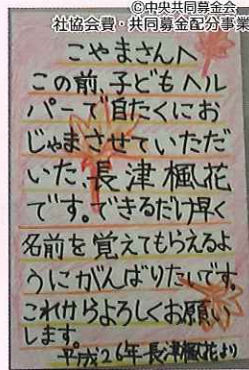 ©中央共同募金会
社協会費・共同募金配分事業
こやまさんへ
この前、子どもヘル
パーで自たくにお
じゃまさせていただ
いた、長津楓花
です。できるだけ早く
名前を覚えてもらえるよ
うにがんばりたいです。
これからよろしくお願い
します。
平成26年長津楓花より